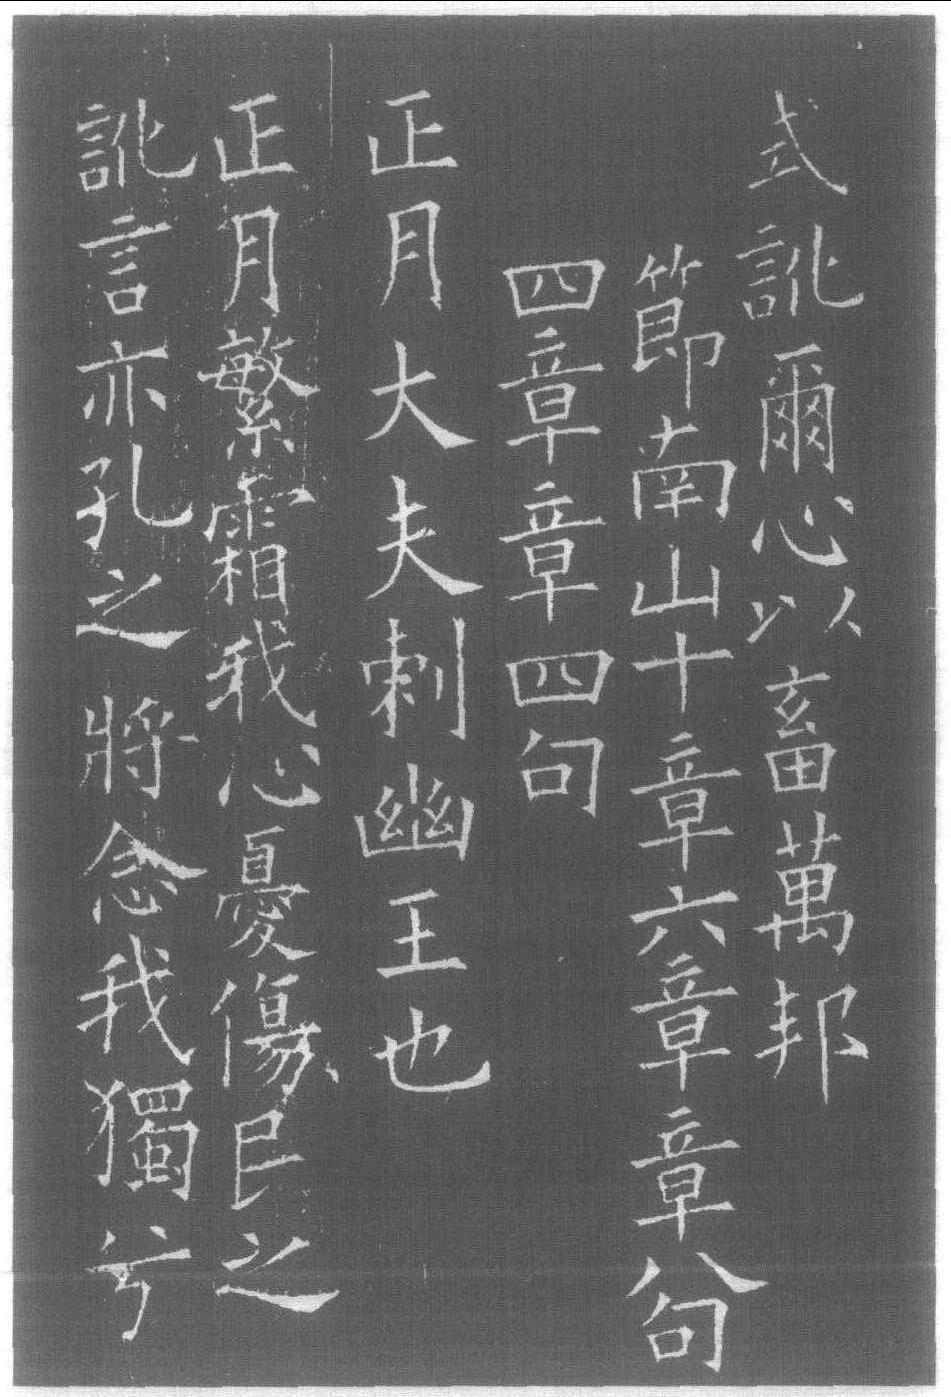 式訛爾心以畜萬邦
節南山十章六章章八句
四章章四句
正月大夫刺幽王也
正月繁霜我心憂傷民之
訛言亦孔之將念我獨兮